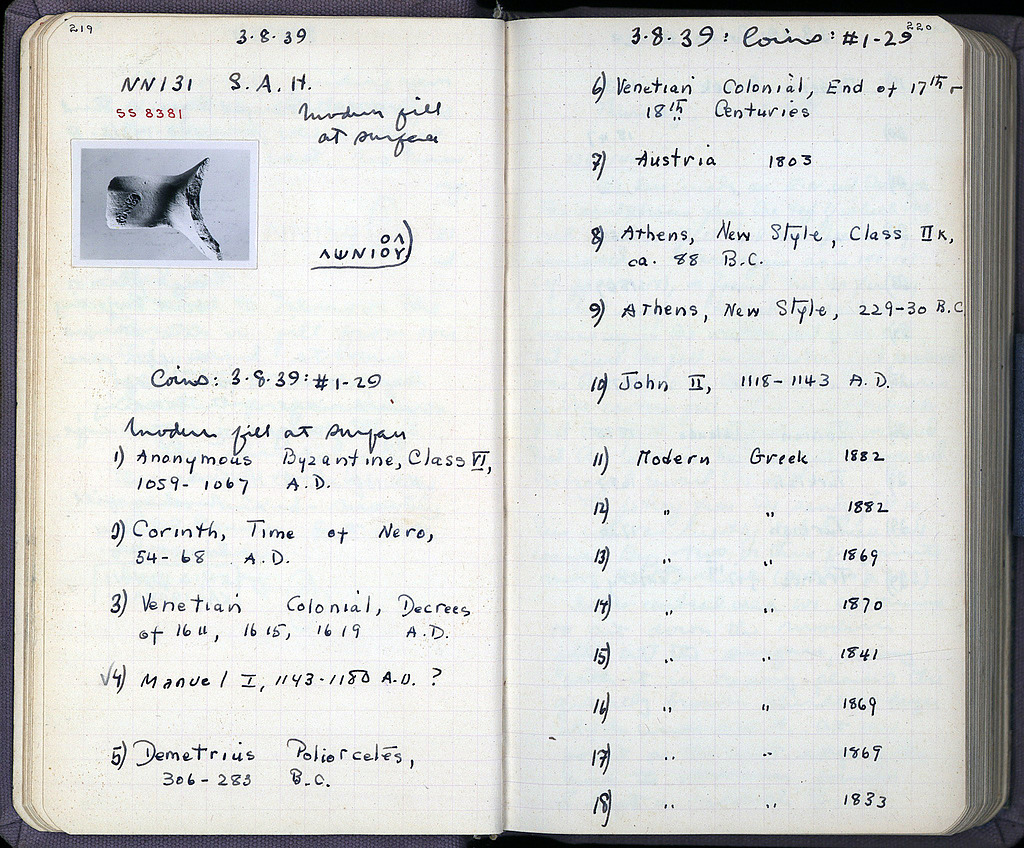 219
3·8·39
NN131 S.A.H.
SS 8381
Modern fill
at surface
ΛΟ
ΛΨΝΙΟΥ
Coins: 3·8·39: #1-29
Modern fill at surface
1) Anonymous Byzantine, Class VI,
1059-1067 A.D.
2) Corinth, Time of Nero,
54-68 A.D.
3) Venetian Colonial, Decrees
of 1611, 1615, 1619 A.D.
√4) Manuel I, 1143-1180 A.D. ?
5) Demetrius Poliorcetes,
306-283 B.C.
220
3·8·39: Coins: #1-29
6) Venetian Colonial, End of 17th-
18th Centuries
7) Austria 1803
8) Athens, New Style, Class IIK,
ca. 88 B.C.
9) Athens, New Style, 229-30 B.C
10) John II, 1118-1143 A.D.
11) Modern Greek 1882
12) " " 1882
13) " " 1869
14) " " 1870
15) " " 1841
16) " " 1869
17) " " 1869
18) " " 1833